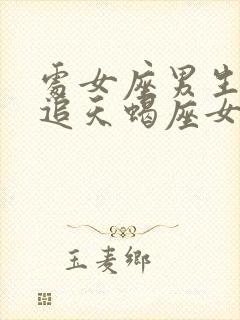 處女座男生
追天蠍座女
玉麦鄉